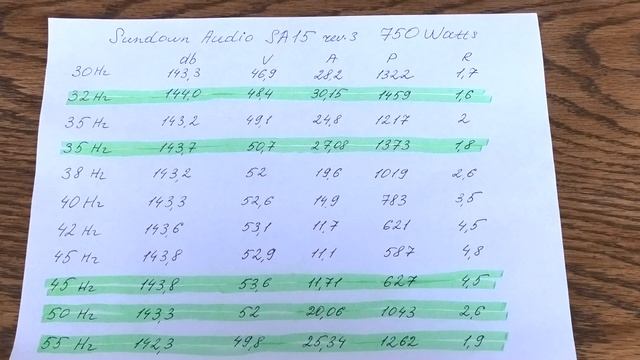 Sundown Audio SA15 rev.3 750 Watts
db V A P R
30 Hz 143,3 46,9 28,2 1322 1,7
32 Hz 144,0 48,4 30,15 1459 1,6
35 Hz 143,2 49,1 24,8 1217 2
35 Hz 143,7 50,7 27,08 1373 1,8
38 Hz 143,2 52 19,6 1019 2,6
40 Hz 143,3 52,6 14,9 783 3,5
42 Hz 143,6 53,1 11,7 621 4,5
45 Hz 143,8 52,9 11,1 587 4,8
45 Hz 143,8 53,6 11,71 627 4,5
50 Hz 143,3 52 20,06 1043 2,6
55 Hz 142,3 49,8 25,34 1262 1,9